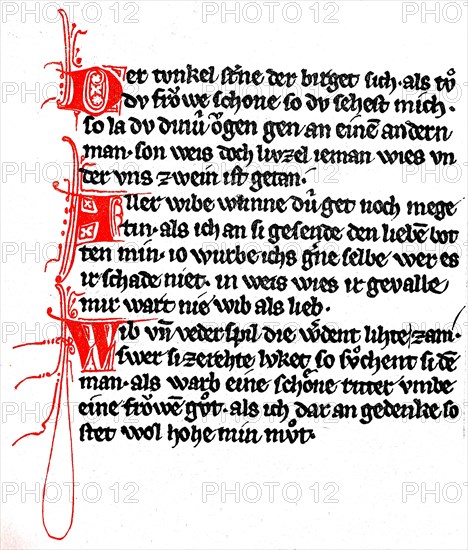 Der tvnkel st̾ne der birget sich · als tv̊
dv frŏwe schone so dv sehest mich ·
so la dv dinv̓ ŏgen gen an einē andern
man · son weis doch lvzel ieman wies vn
der vns zwein ist getan ·
Aller wibe wunne dv̓ get noch mege
tin · als ich an si gesende den liebē bot
ten min · io wurbe ichs g̾ne selbe wer es
ir schade niet · in weis wies ir gevalle
mir wart nie wib als lieb ·
Wib vn̄ vederspil die w̾dent lihte zam ·
swer si ze rehte lvket so sv̊chent si dē
man · als warb eine schŏne ritter vmbe
eine frŏwē gv̊t · als ich dar an gedenke so
stet wol hohe min mv̊t ·
PHOTO 12